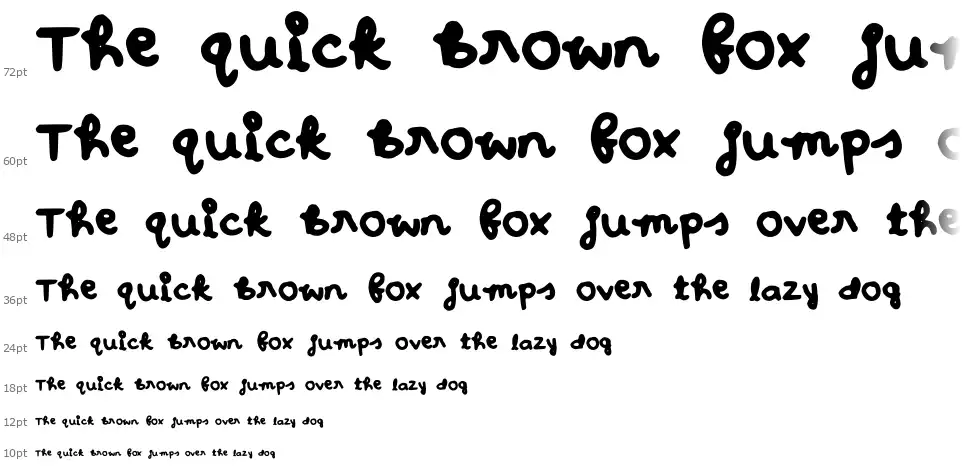 72pt The quick brown fox jum
60pt The quick brown fox jumps
48pt The quick brown fox jumps over the
36pt The quick brown fox jumps over the lazy dog
24pt The quick brown fox jumps over the lazy dog
18pt The quick brown fox jumps over the lazy dog
12pt The quick brown fox jumps over the lazy dog
10pt The quick brown fox jumps over the lazy dog